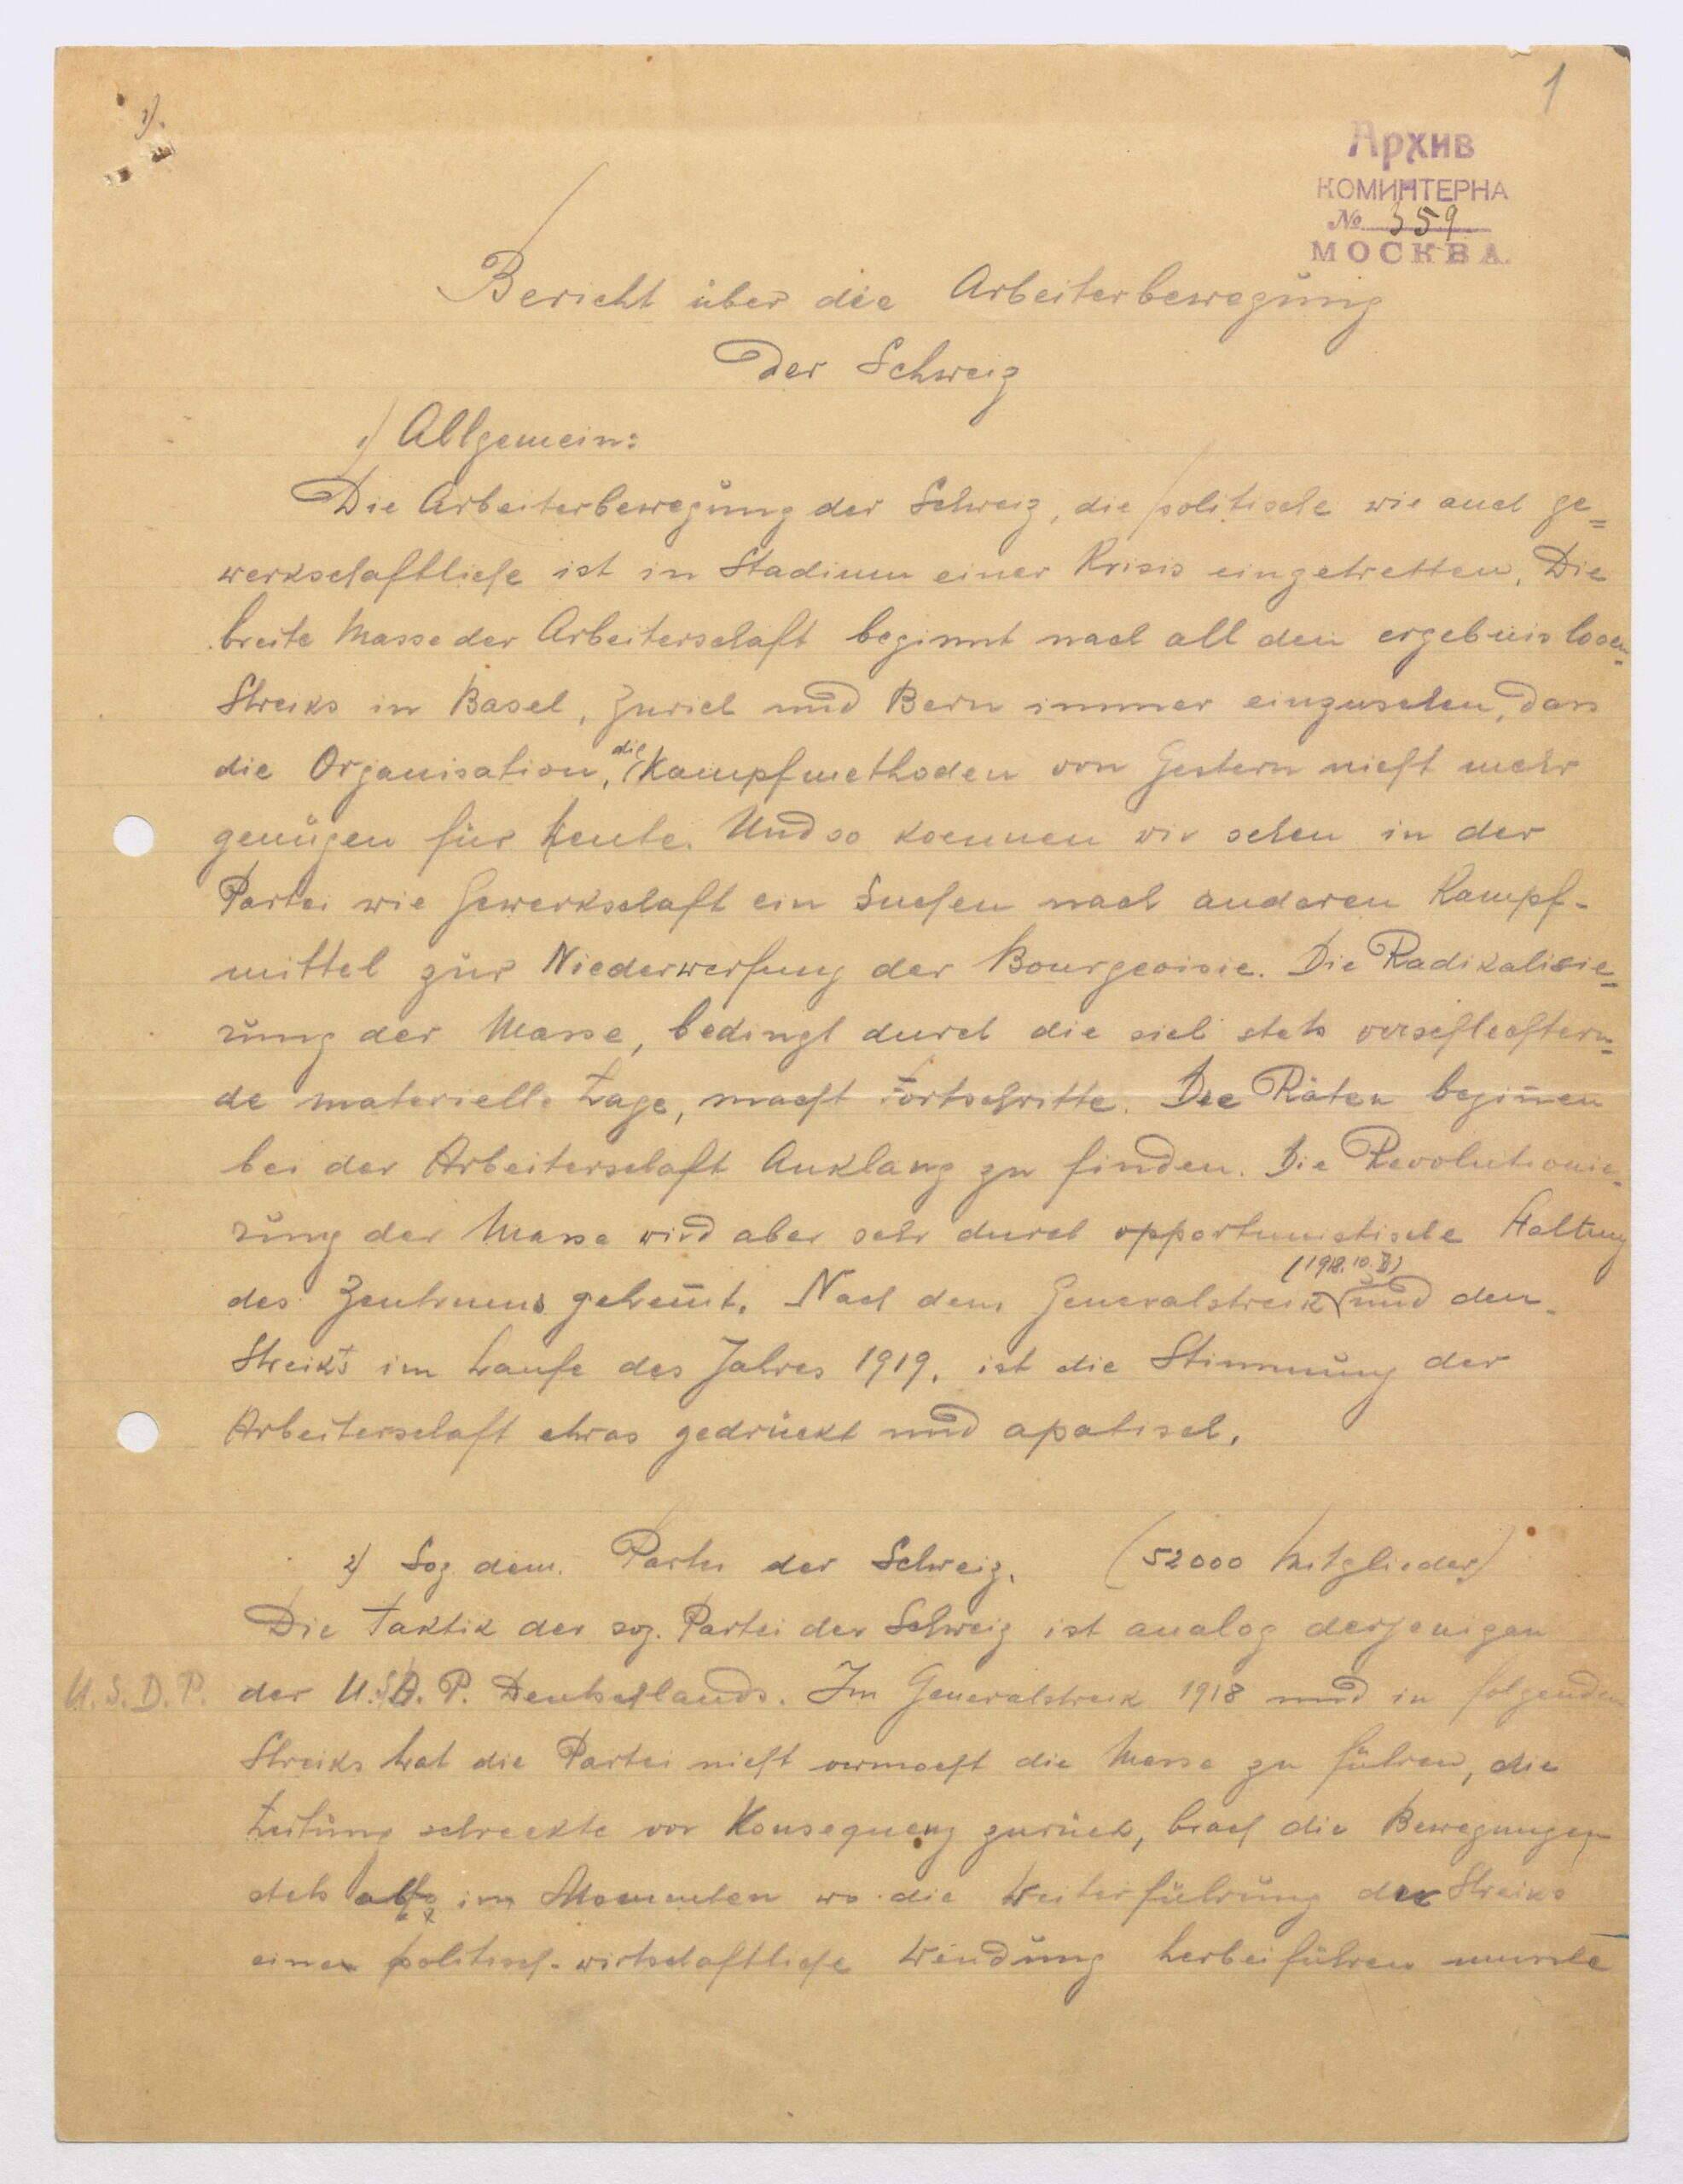 1
1).
Архив
КОМИНТЕРНА
№ 359
МОСКВА.
Bericht über die Arbeiterbewegung
Der Schweiz
1) Allgemein:
Die Arbeiterbewegung der Schweiz, die politische wie auch ge=
werkschaftliche ist in Stadium einer Krisis eingetretten. Die
breite Masse der Arbeiterschaft beginnt nach all den ergebnislosen
Streiks in Basel, Zurich und Bern immer einzusehen, dass
die Organisation, die Kampfmethoden von Gestern nicht mehr
genügen für heute. Und so koennen wir sehen in der
Partei wie Gewerkschaft ein Suchen nach anderen Kampf-
mittel zur Niederwerfung der Bourgeoisie. Die Radikalisie=
rung der Masse, bedingt durch die sich stets verschlechtern=
de materielle Lage, macht Fortschritte. Die Räten begin̄en
bei der Arbeiterschaft Anklang zu finden. Die Revolutionie-
rung der Masse wird aber sehr durch opportunistische Haltung
des Zentrums gehem̄t. Nach dem Generalstreik (1918. 10. II) und den
Streiks im Laufe des Jahres 1919, ist die Stimmung der
Arbeiterschaft etwas gedrückt und apatisch.
2) Soz. dem. Partei der Schweiz. (52000 Mitglieder)
Die Taktik der soz. Partei der Schweiz ist analog derjenigen
U.S.D.P. der U.S.D.P. Deutschlands. Im Generalstreik 1918 und in folgenden
Streiks hat die Partei nicht vermocht die Masse zu führen, die
Leitung schreckte vor Konsequenz zurück, brach die Bewegungen
stets ab im Momenten wo die Weiterführung der Streiks
eine politisch-wirtschaftliche Wendung herbeiführen musste